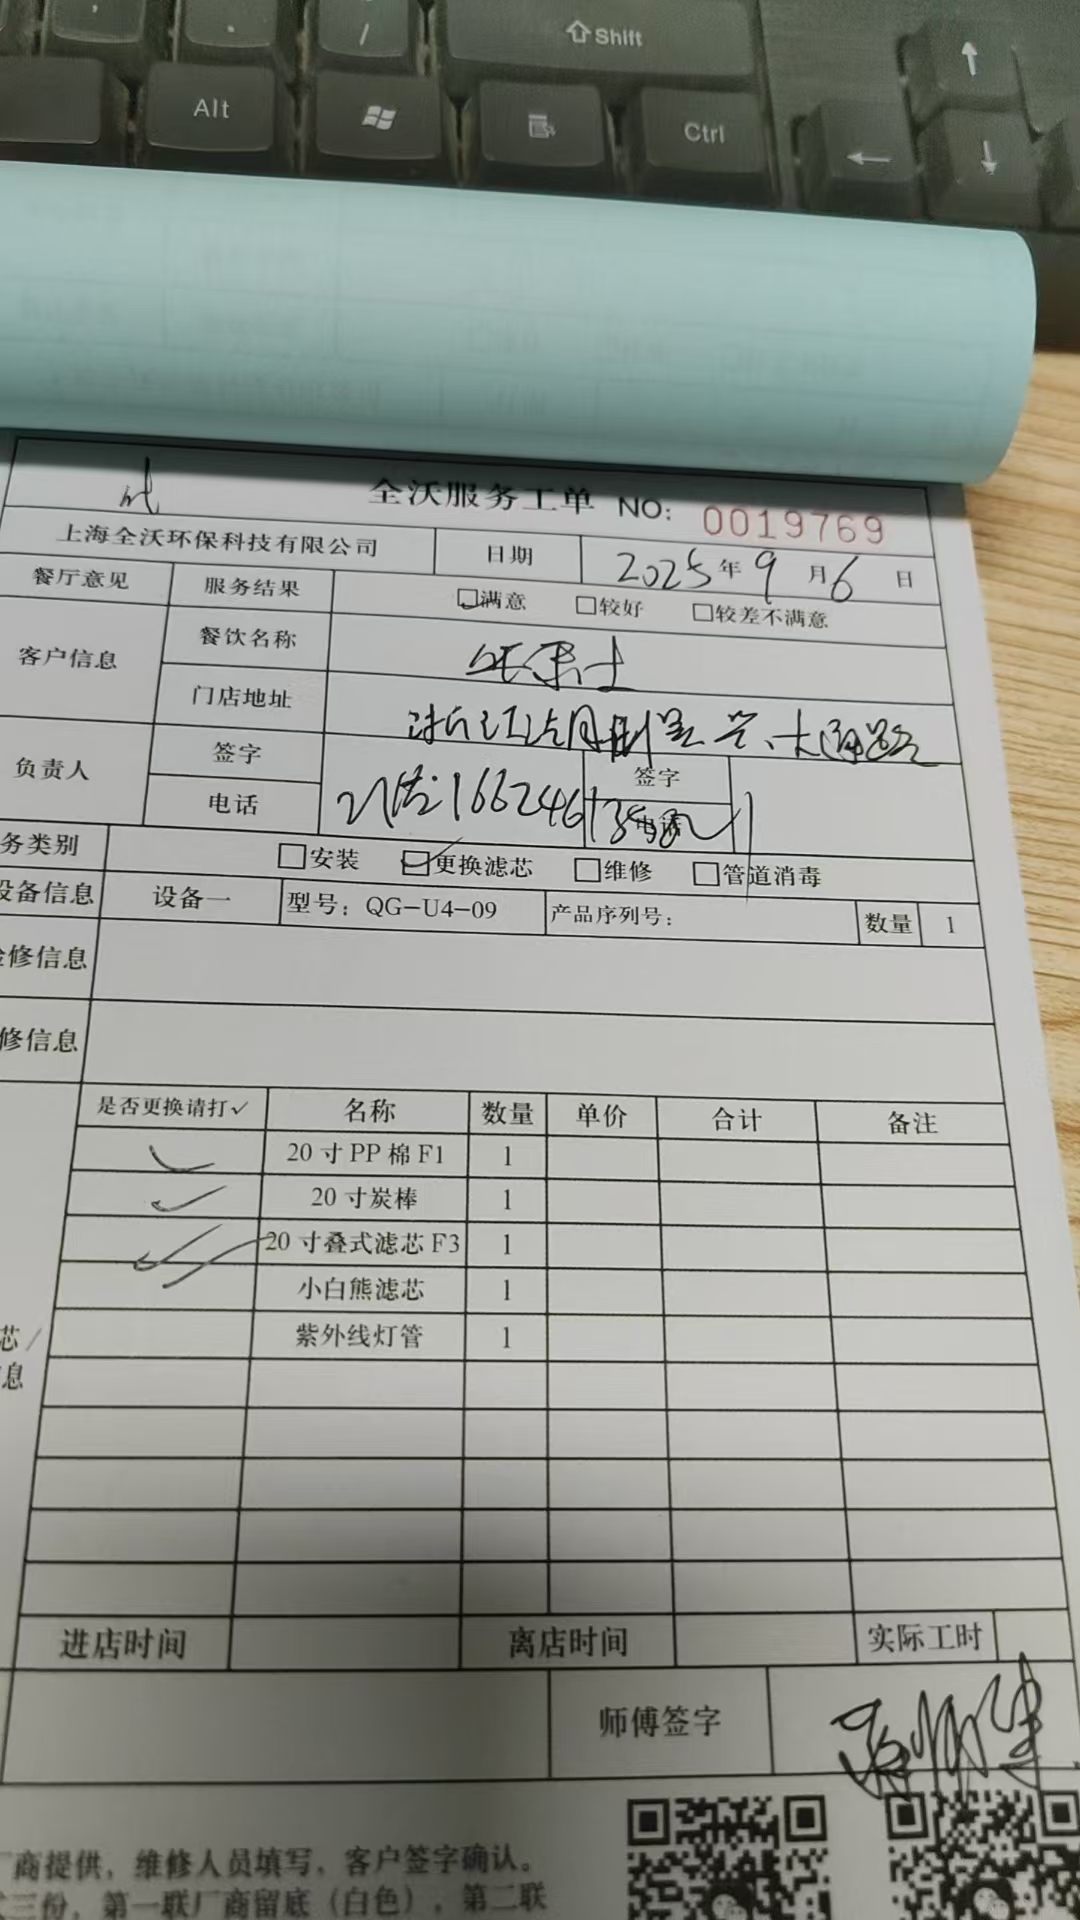 Shift
Alt
Ctrl
全沃服务工单 NO: 0019769
上海全沃环保科技有限公司 日期 2025年9月6日
餐厅意见 服务结果 满意 较好 较差不满意
客户信息 餐饮名称
门店地址
负责人 签字 签字
电话 电话
务类别 安装 更换滤芯 维修 管道消毒
设备信息 设备一 型号：QG-U4-09 产品序列号： 数量 1
修信息
修信息
是否更换请打✓ 名称 数量 单价 合计 备注
✓ 20寸PP棉F1 1
✓ 20寸炭棒 1
✓ 20寸叠式滤芯F3 1
✓ 小白熊滤芯 1
紫外线灯管 1
芯/
息
进店时间 离店时间 实际工时
师傅签字
商提供，维修人员填写，客户签字确认。
式三份，第一联厂商留底（白色），第二联